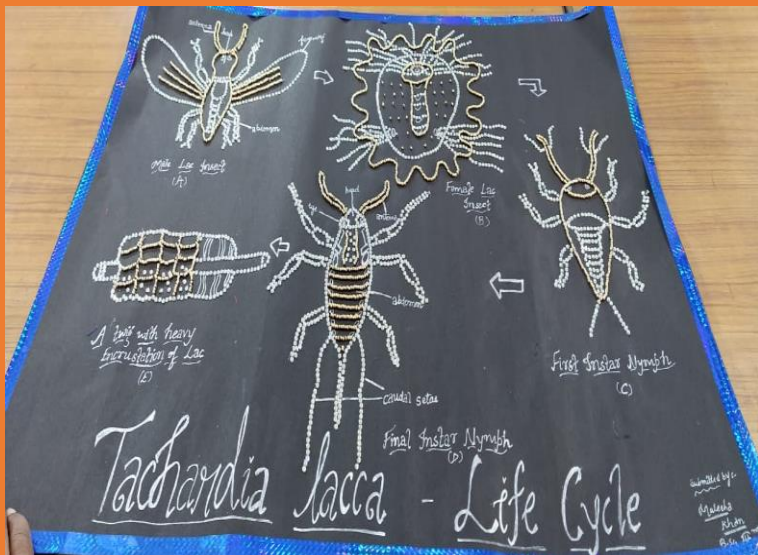 antenna
head
eye
forewing
abdomen
Male Lac Insect
(A)
Female Lac
Insect
(B)
First Instar Nymph
(C)
head
eye
antenna
abdomen
caudal setae
Final Instar Nymph
(D)
A twig with heavy
Incrustation of Lac
(E)
Tachardia lacca - Life Cycle
Submitted by:-
Khan